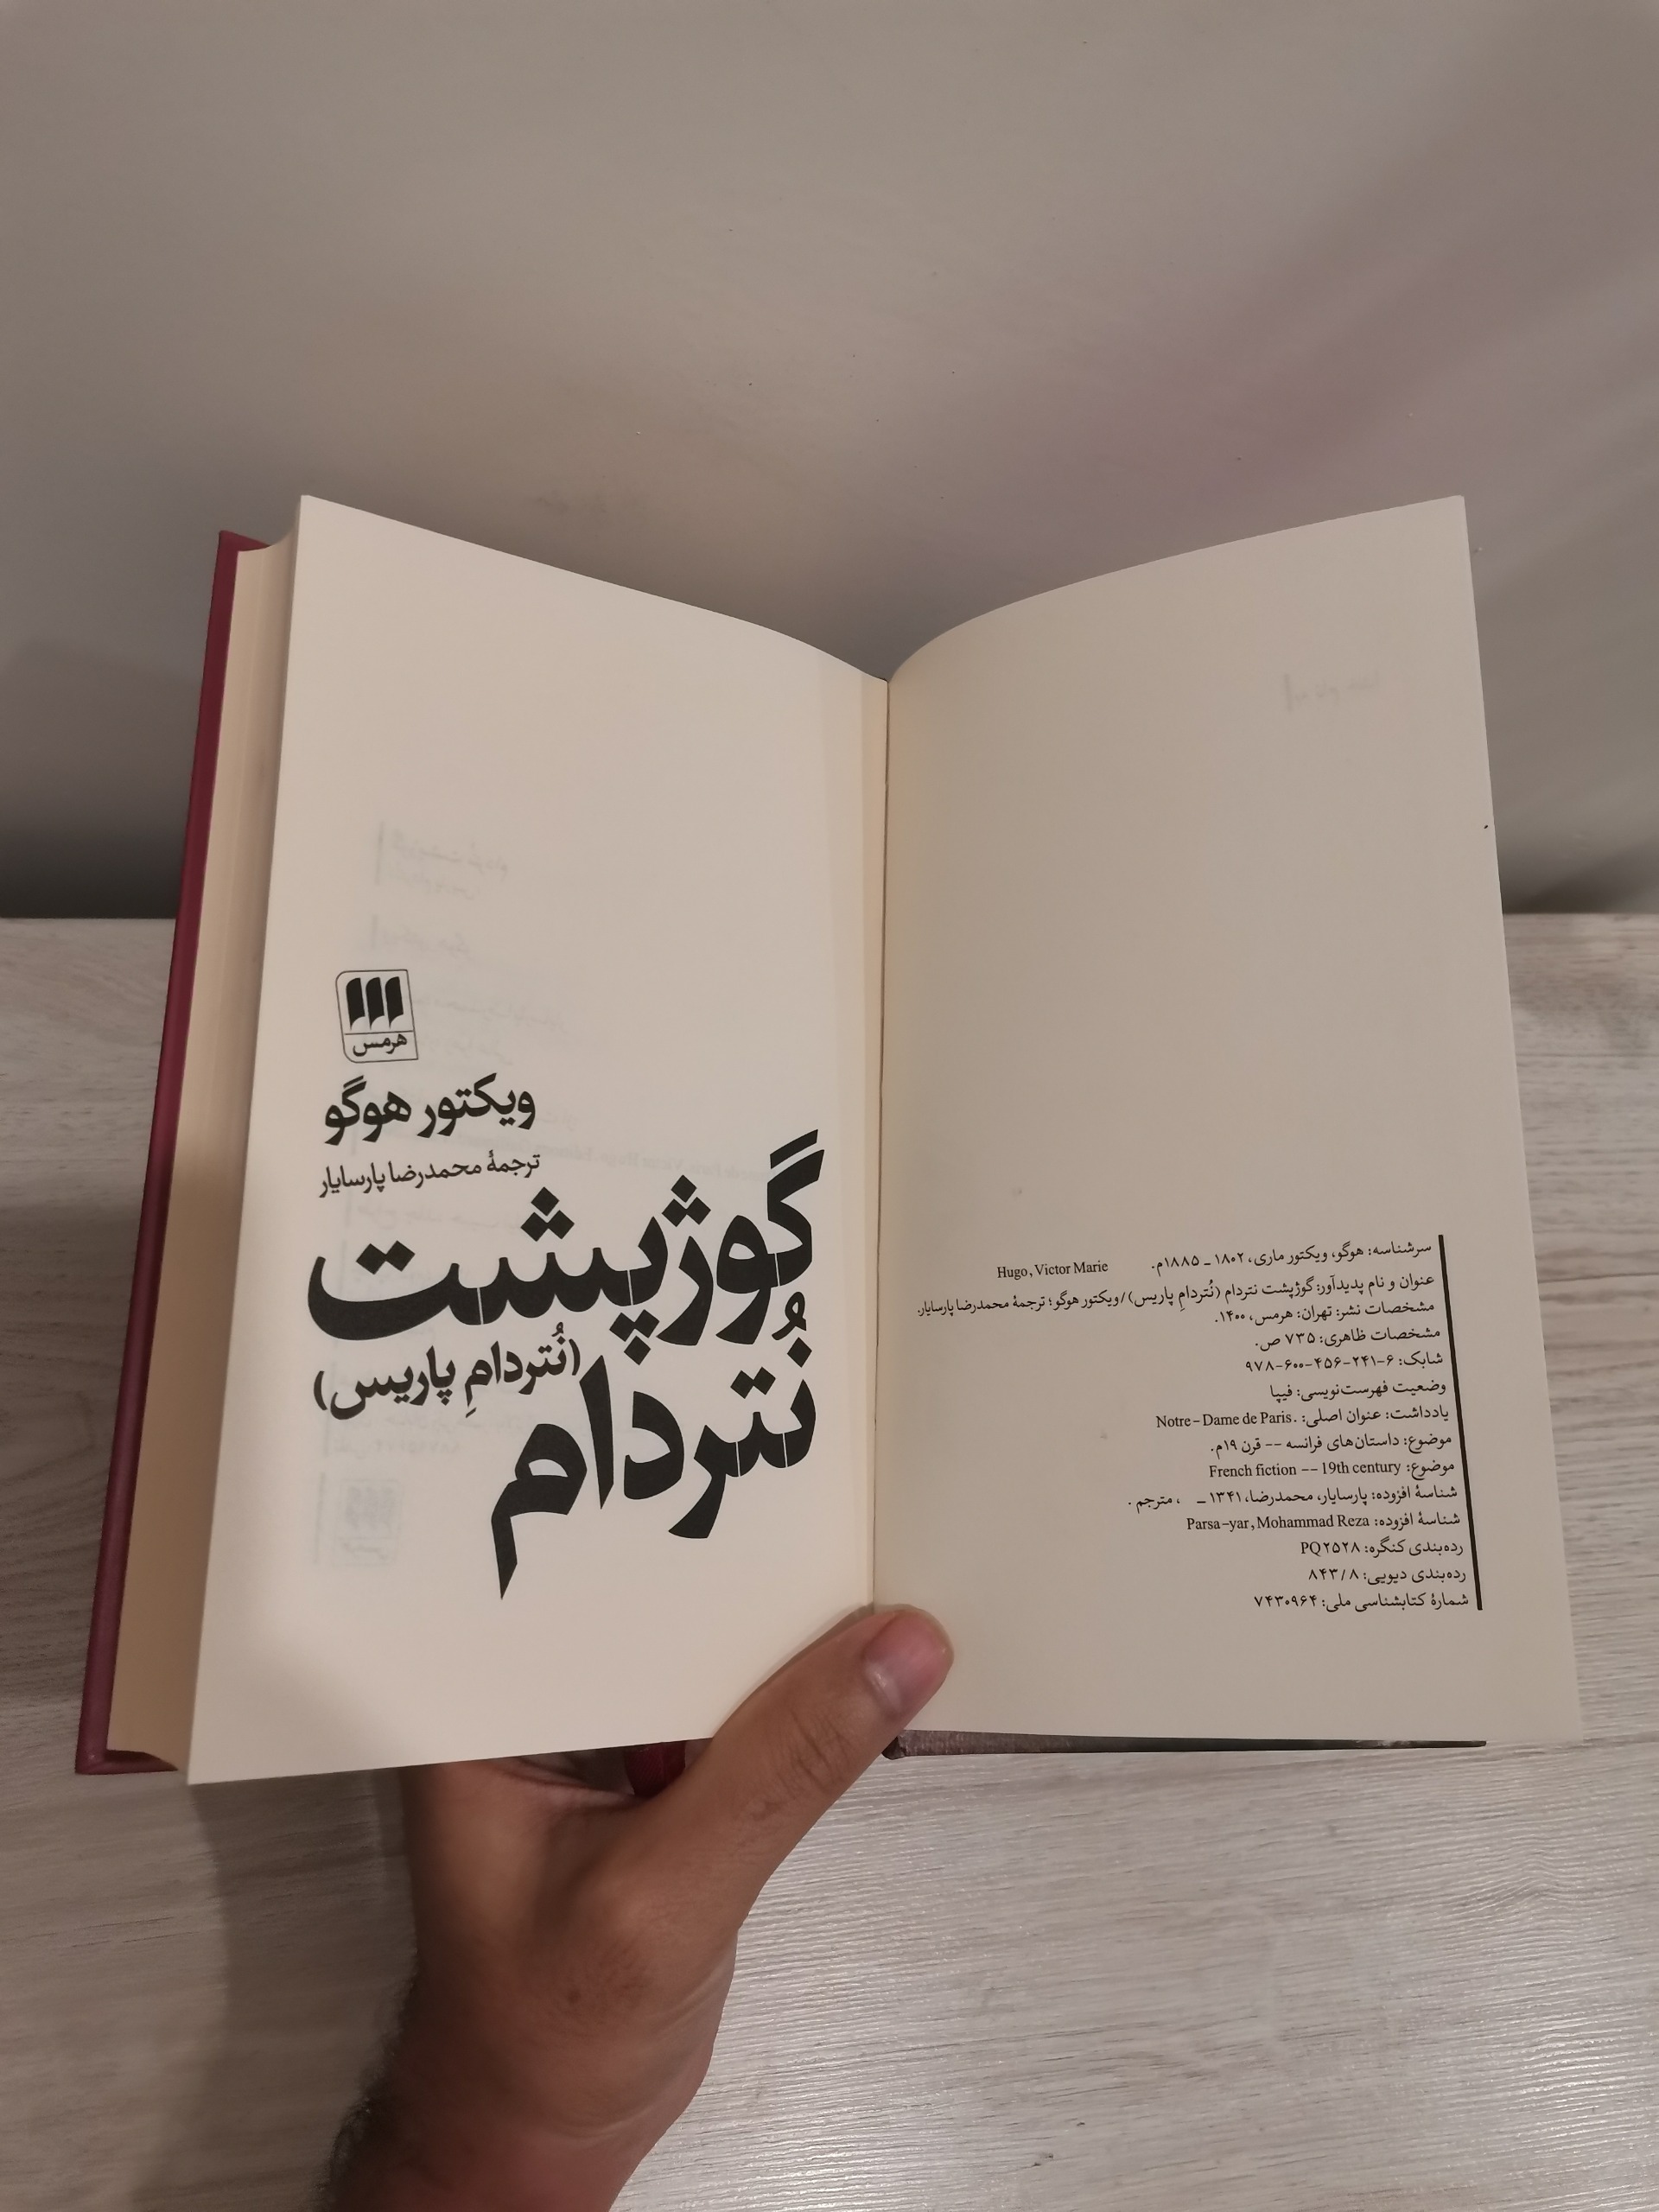 سرشناسه: هوگو، ویکتور ماری، ۱۸۰۲ ـ ۱۸۸۵م. Hugo, Victor Marie
عنوان و نام پدیدآور: گوژپشت نتردام (نُتردامِ پاریس)/ ویکتور هوگو؛ ترجمهٔ محمدرضا پارسایار.
مشخصات نشر: تهران: هرمس، ۱۴۰۰.
مشخصات ظاهری: ۷۳۵ ص.
شابک: ۶-۲۴۱-۴۵۶-۶۰۰-۹۷۸
وضعیت فهرست‌نویسی: فیپا
یادداشت: عنوان اصلی: Notre-Dame de Paris.
موضوع: داستان‌های فرانسه -- قرن ۱۹م.
موضوع: French fiction -- 19th century
شناسهٔ افزوده: پارسایار، محمدرضا، ۱۳۴۱ ـ ، مترجم.
شناسهٔ افزوده: Parsa-yar, Mohammad Reza
رده‌بندی کنگره: PQ۲۵۲۸
رده‌بندی دیویی: ۸۴۳/۸
شمارهٔ کتابشناسی ملی: ۷۴۳۰۹۶۴
هرمس
ویکتور هوگو
ترجمهٔ محمدرضا پارسایار
گوژپشت
نُتردام
(نُتردامِ پاریس)